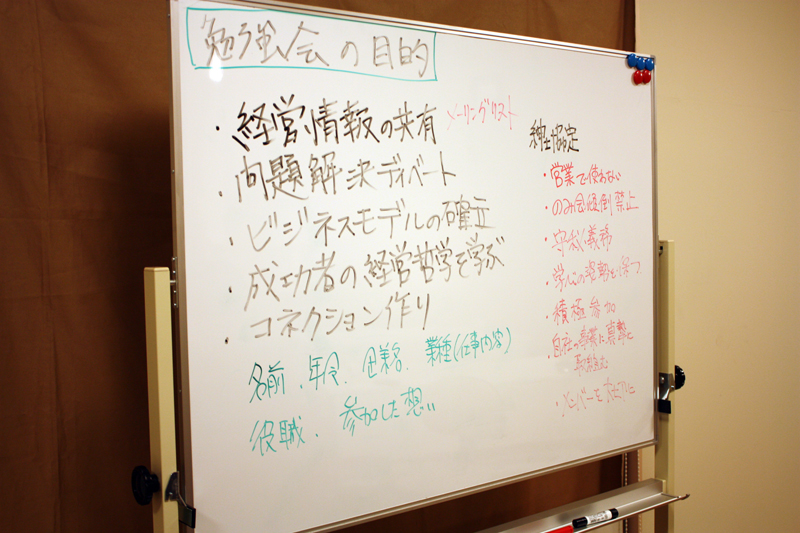 勉強会の目的
・経営情報の共有 メーリングリスト
・問題解決ディベート
・ビジネスモデルの確立
・成功者の経営哲学を学ぶ
・コネクション作り
名前、年令、企業名、業種(仕事内容)
役職、参加した想い
紳士協定
・営業で使わない
・のみ会傾倒禁止
・守秘義務
・学ぶの姿勢を保つ
・積極参加
・自社の事業に真摯に
取り組む
・メンバーを